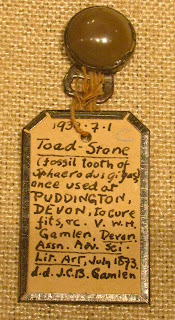 Toad-Stone
(fossil tooth of
Sphaerodus gigas)
once used at
PUDDINGTON,
DEVON, to cure
fits, &c. V. W.H.
Gamlen, Devon
Assn. Adv. Sci.
Lit. Art, July 1873.
d.d. J.C.B. Gamlen